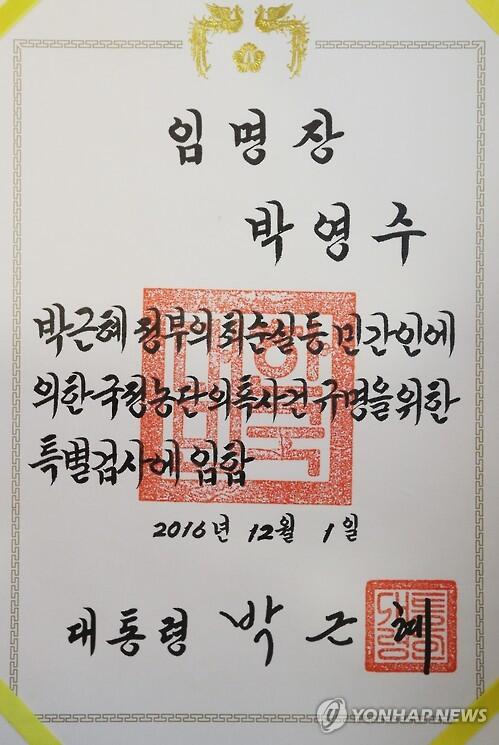 임명장
박영수
박근혜 정부의 최순실 등 민간인에
의한 국정농단 의혹사건 규명을 위한
특별검사에 임함
2016년 12월 1일
대통령 박근혜
YONHAPNEWS